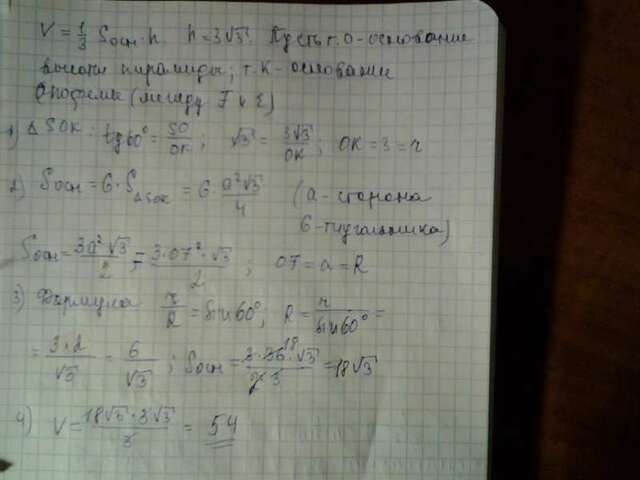 V = 1/3 Sосн·h h = 3√3. Пусть т. О - основание
высоты пирамиды; т. К - основание
апофемы (между F и E)
1) Δ SOK: tg 60° = SO/OK; √3 = 3√3/OK; OK = 3 = r
2) Sосн = 6·S△SOK = 6·a²√3/4 (a - сторона
6-тиугольника)
Sосн = 3a²√3/2 = 3·OF²·√3/2; OF = a = R
3) Формула r/R = sin 60°; R = r/sin 60° =
= 3·2/√3 = 6/√3; Sосн = 3·36·√3/2·3 = 18√3
18
4) V = 18√3·3√3/3 = 54